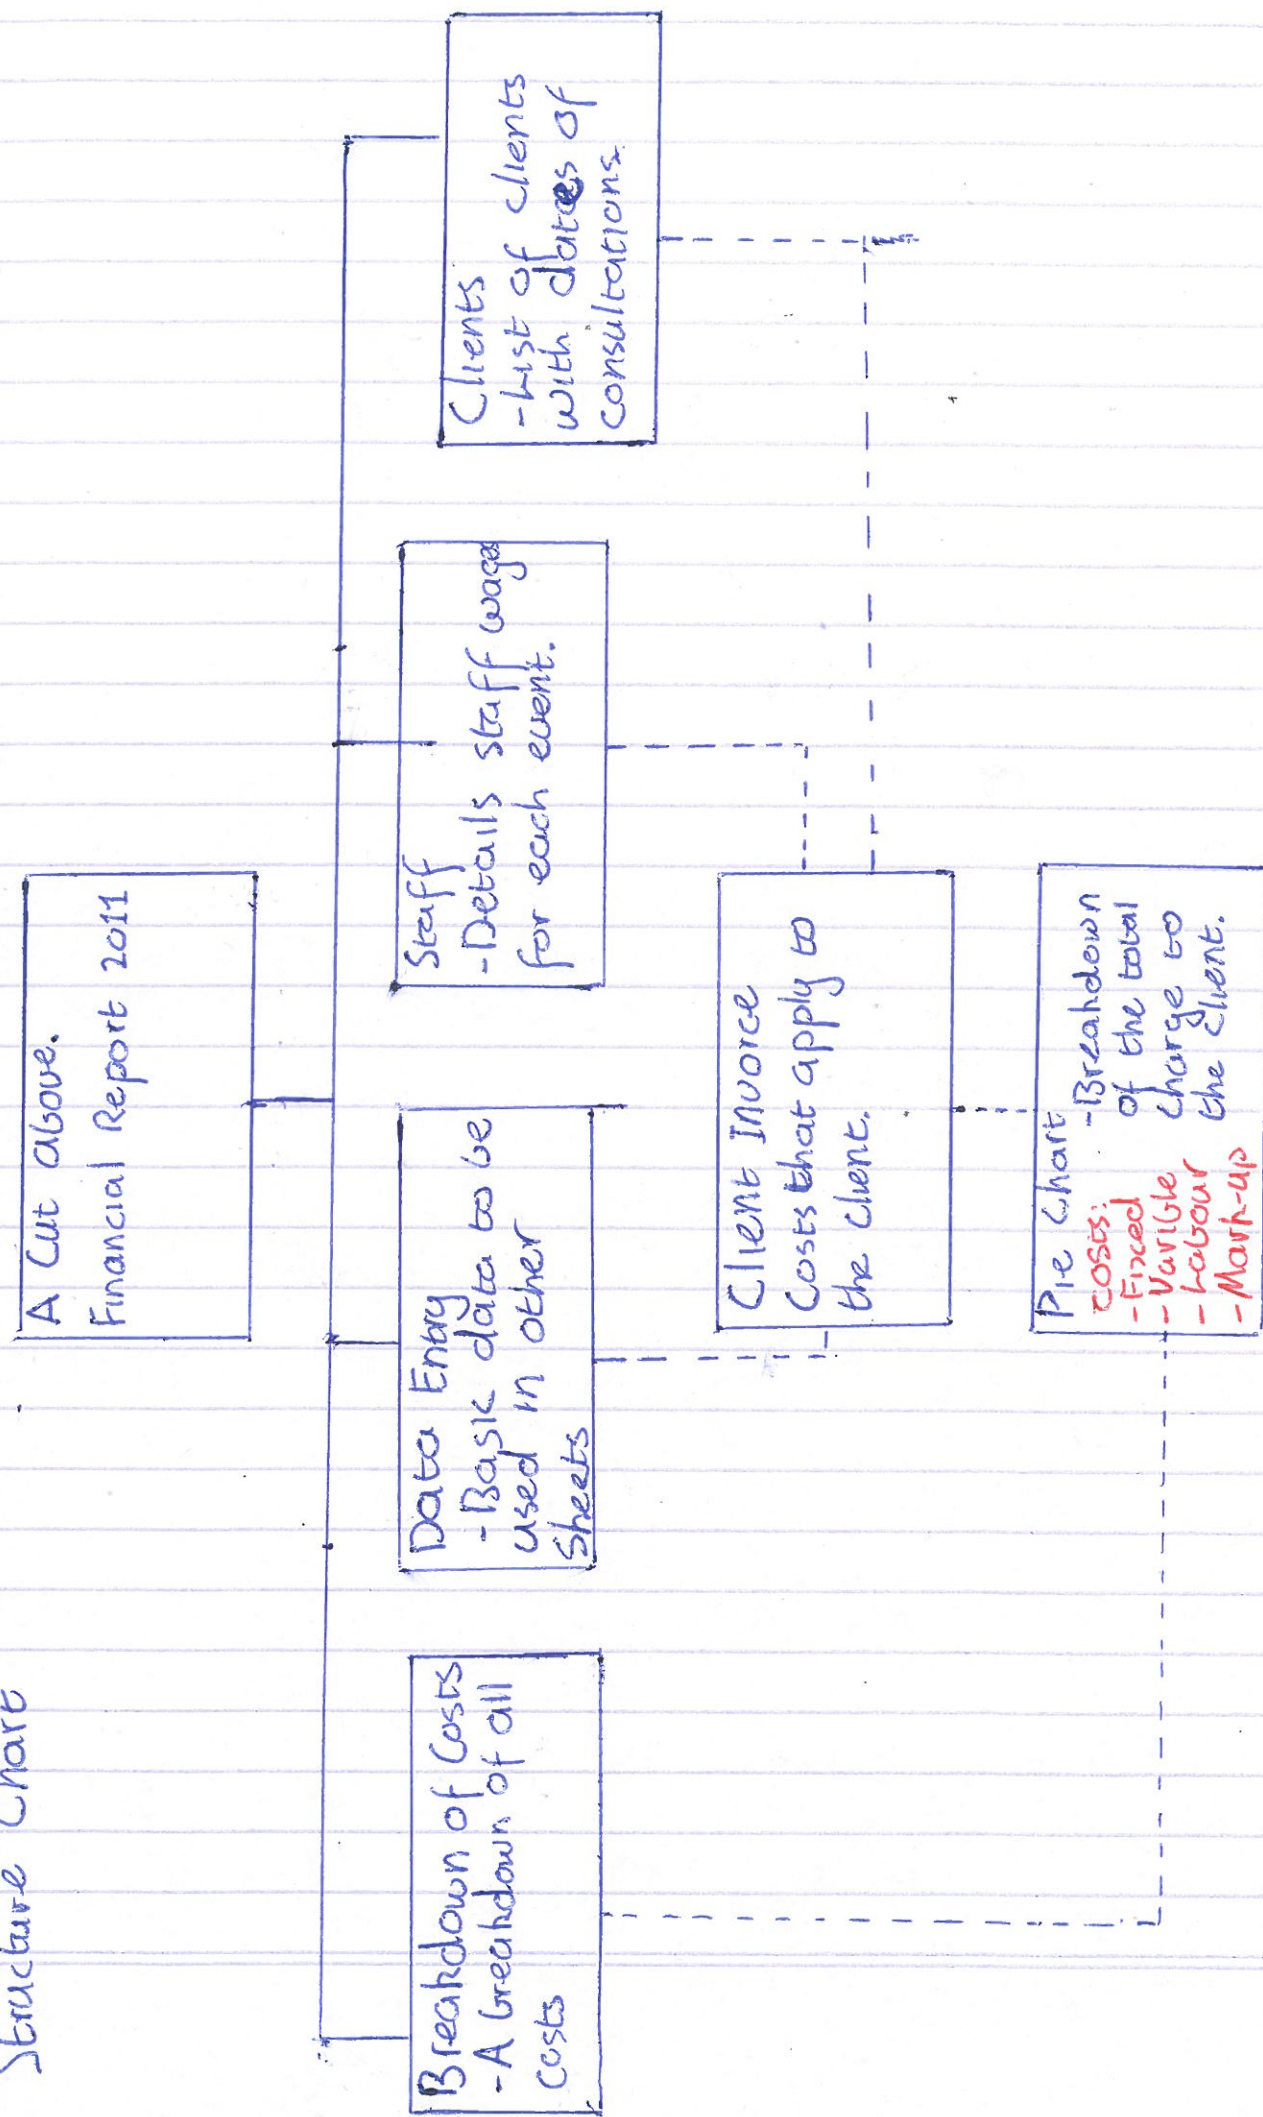 Structure Chart
A Cut above.
Financial Report 2011
Breakdown of Costs
- A breakdown of all
costs
Data Entry
- Basic data to be
used in other
sheets
Staff
- Details staff wages
for each event.
Clients
- List of clients
with dates of
consultations.
Client Invorce
Costs that apply to
the client.
Pie Chart
- Breakdown
of the total
charge to
the client.
costs:
- Fixed
- Varible
- Labour
- Mark-up